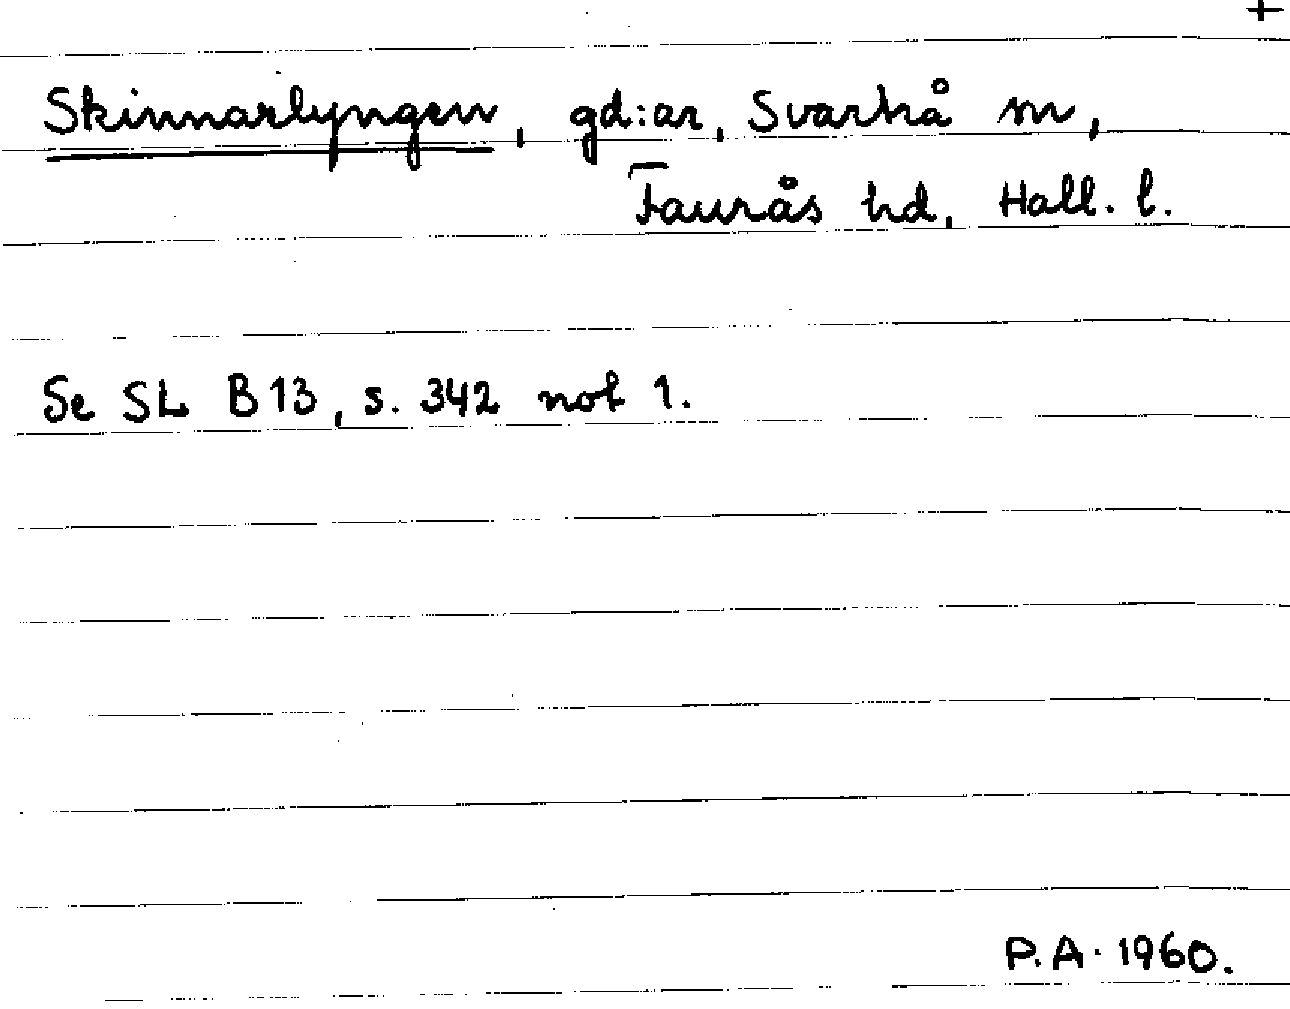 +
Skinnarlyngen, gd:ar, Svartrå sn,
Faurås hd, Hall. l.
Se SL B13, s. 342 not 1.
P.A. 1960.